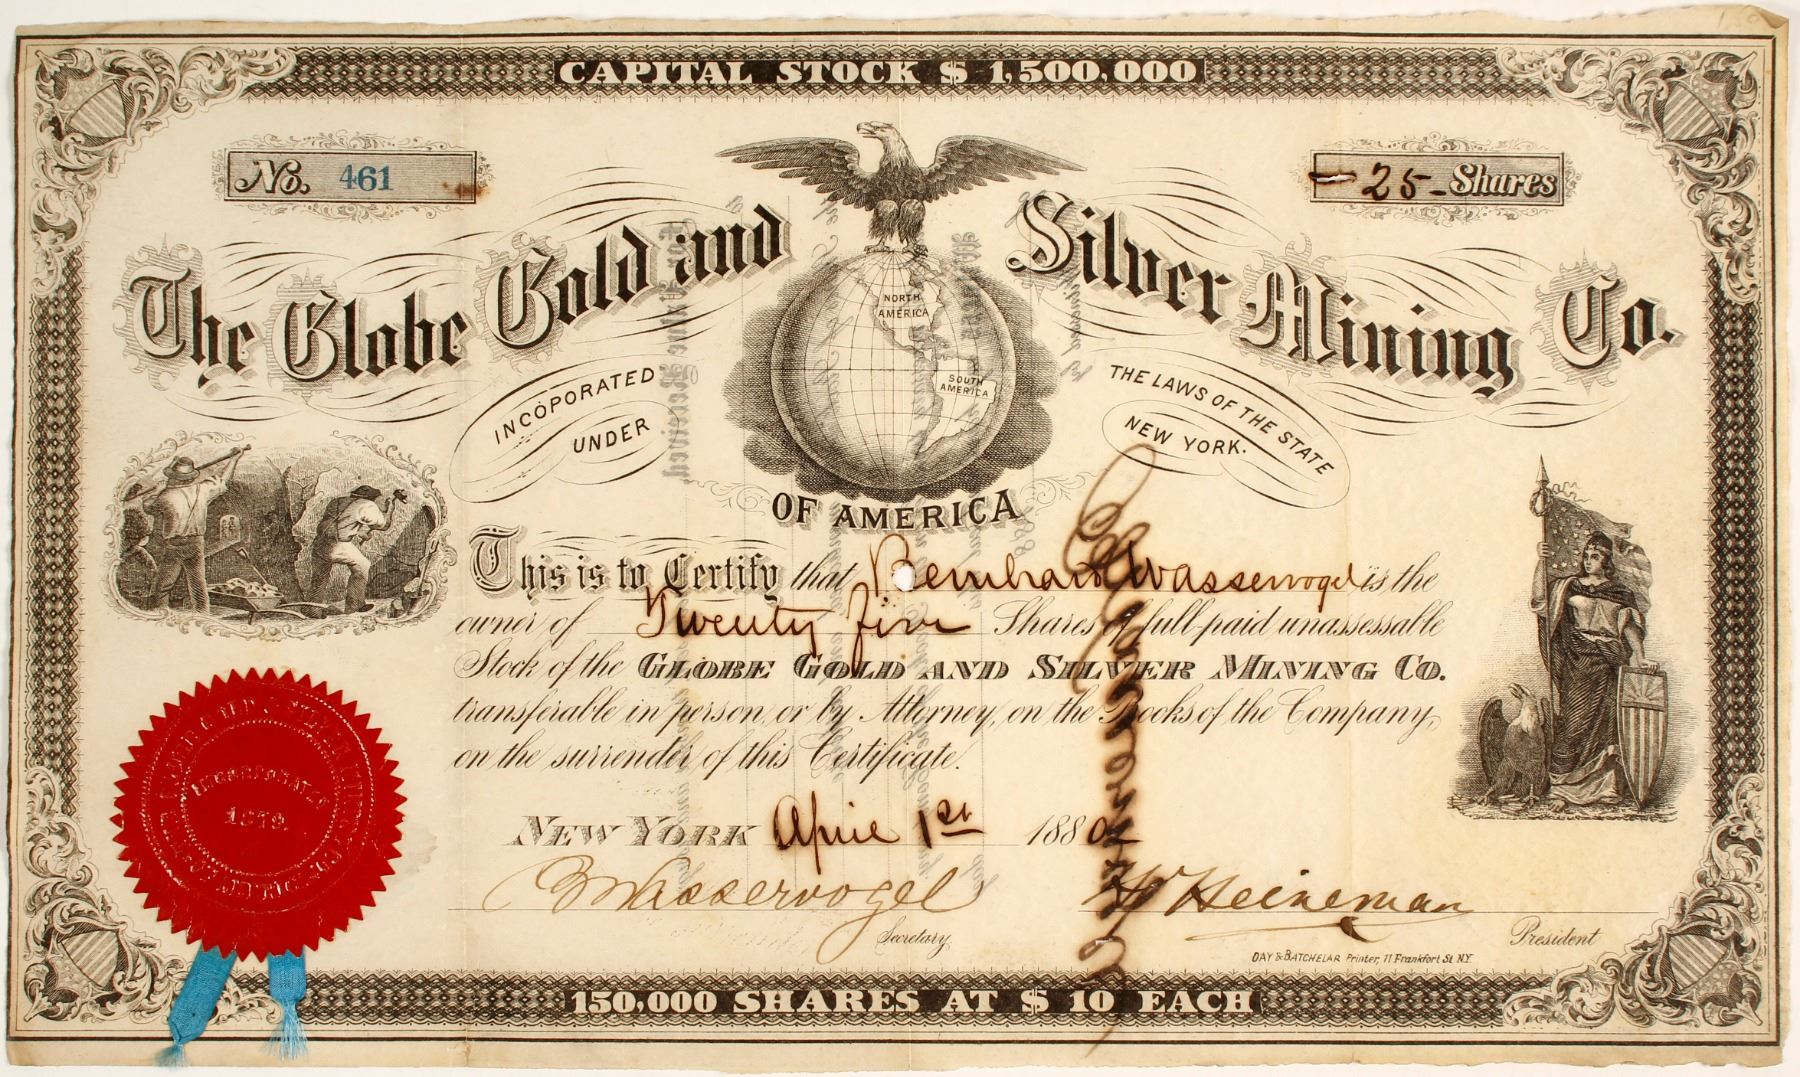 CAPITAL STOCK $ 1,500,000
No. 461
- 25 - Shares
The Globe Gold and Silver Mining Co.
NORTH AMERICA
SOUTH AMERICA
INCOPORATED UNDER
THE LAWS OF THE STATE NEW YORK.
OF AMERICA
This is to Certify that Bernhard Wasservogel is the
owner of Twenty five Shares of full paid unassessable
Stock of the GLOBE GOLD AND SILVER MINING CO.
transferable in person, or by Attorney, on the Books of the Company,
on the surrender of this Certificate.
INCORPORATED
1879.
NEW YORK April 1st 1880
B Wasservogel
Secretary
H Heineman
President
DAY & BATCHELAR Printer, 11 Frankfort St. N.Y.
150,000 SHARES AT $ 10 EACH